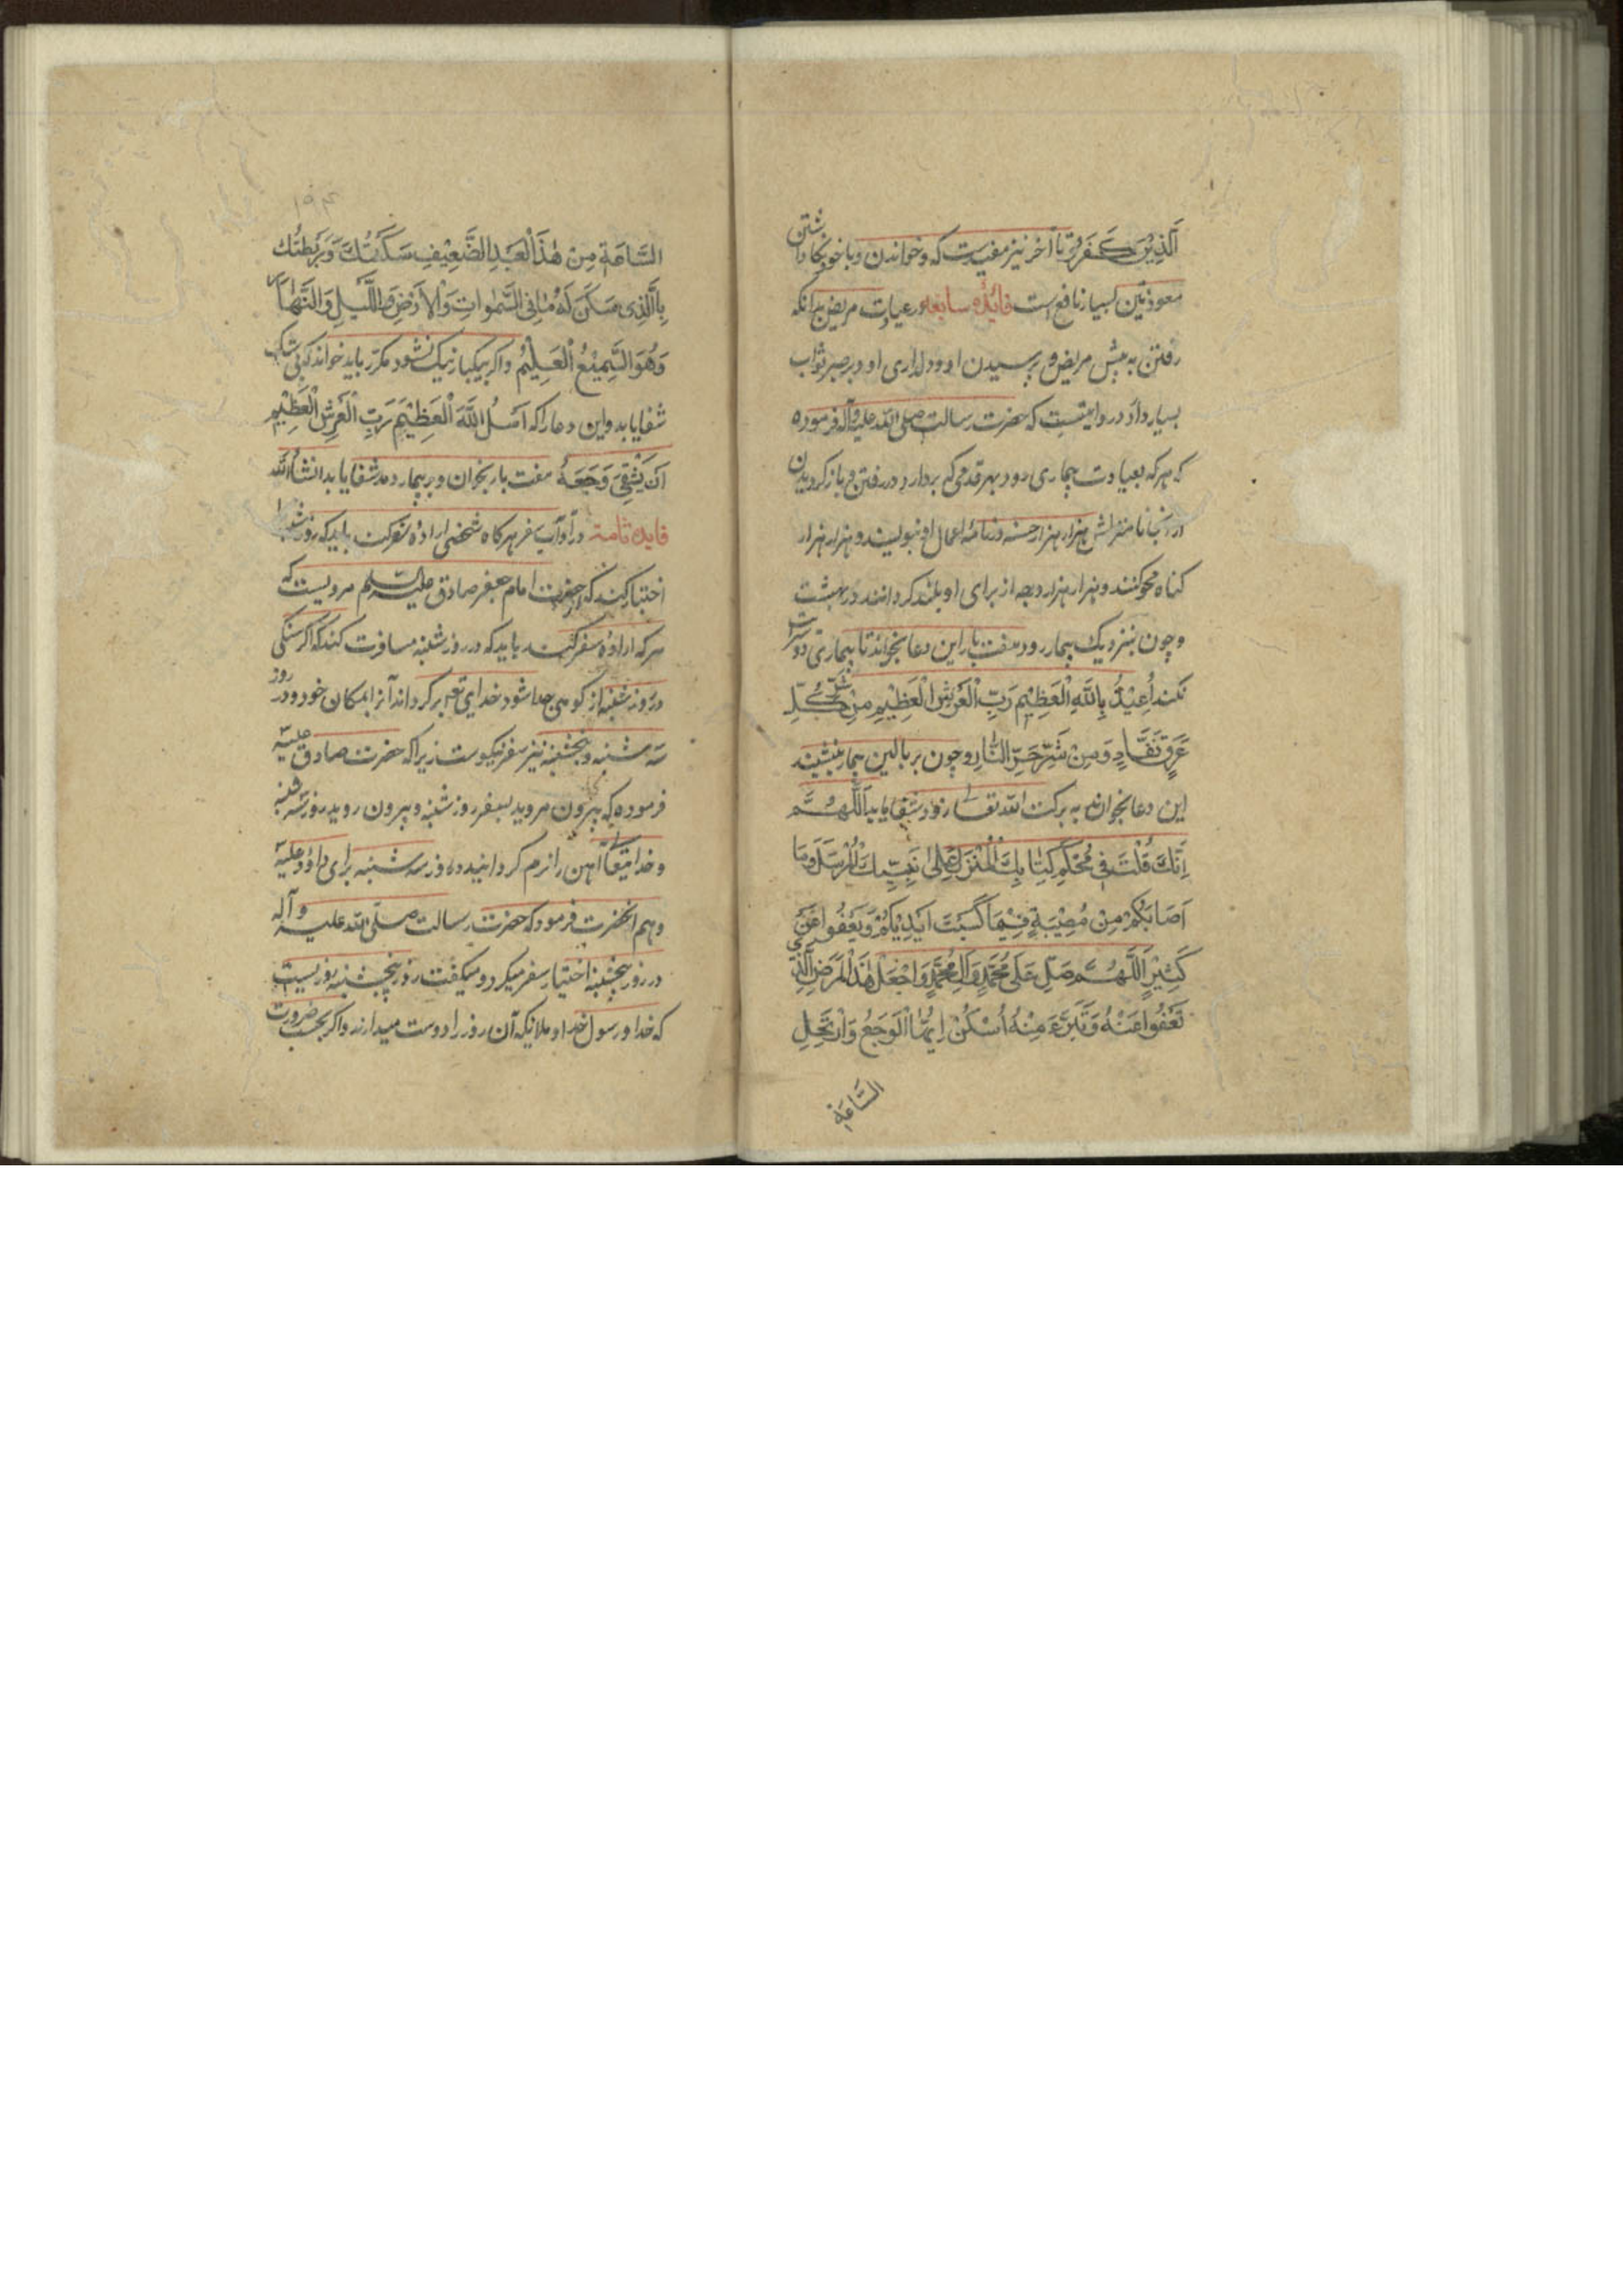 الَّذِيْنَ كَفَرُوْا تا آخر نیز مفیدست که وخواندن وباخود نگاداشتن
معوذتین بسیار نافع است فایدهٔ سابعه در عیادت مریض بدانکه
رفتن به پیش مریض و پرسیدن او و دلداری او و بر صبر ثواب
بسیار دارد در روایتست که حضرت رسالت صلی الله علیه وآله فرموده
که هرکه بعیادت بیماری رود بهر قدمی که بردارد در رفتن و بازگردیدن
از آنجا تا منزلش هزار هزار حسنه در نامهٔ اعمال او بنویسند و هزار هزار
گناه محو کنند و هزار هزار درجه از برای او بلند گردانند در بهشت
و چون بنزدیک بیمار رود هفت بار این دعا بخواند تا بیماری دو سرایت
نکند اُعِيْذُكَ بِاللهِ الْعَظِيْمِ رَبِّ الْعَرْشِ الْعَظِيْمِ مِنْ شَرِّ كُلِّ
عَرَقٍ نَفَّارٍ وَمِنْ شَرِّ حَرِّ النَّارِ و چون بر بالین بیمار بنشیند
این دعا بخواند به برکت الله تعا زود شفا یابد اَللّٰهُمَّ
اِنَّكَ قُلْتَ فِي مُحْكَمِ كِتَابِكَ الْمُنْزَلِ عَلٰى نَبِيِّكَ الْمُرْسَلِ وَمَا
اَصَابَكُمْ مِنْ مُصِيْبَةٍ فَبِمَا كَسَبَتْ اَيْدِيْكُمْ وَيَعْفُوا عَنْ
كَثِيْرٍ اَللّٰهُمَّ صَلِّ عَلٰى مُحَمَّدٍ وَآلِ مُحَمَّدٍ وَاجْعَلْ هٰذَا الْمَرَضَ الَّذِي
تَعْفُوا عَنْهُ وَتُبَرِّءُ مِنْهُ اُسْكُنْ اَيُّهَا الْوَجَعُ وَارْتَحِلِ
السَّاعَةَ
۱۹۴
السَّاعَةَ مِنْ هٰذَا الْعَبْدِ الضَّعِيْفِ سَكَّنْتُكَ وَرَبَطْتُكَ
بِالَّذِى سَكَنَ لَهُ مَا فِى السَّمٰوَاتِ وَالْاَرْضِ وَاللَّيْلِ وَالنَّهَارِ
وَهُوَ السَّمِيْعُ الْعَلِيْمُ واگر بیکبار نیک نشود مکرّر باید خواند که بی شک
شفا یابد واین دعا را که اَسْئَلُ اللهَ الْعَظِيْمَ رَبَّ الْعَرْشِ الْعَظِيْمِ
اَنْ يَشْفِيَ وَجَعَهُ هفت بار بخوان و بر بیمار دمد شفا یابد انشاءالله
فایده ثامنه در آداب سفر هرگاه شخصی اراده سفر کند باید که روز شنبه را
اختیار کند که حضرت امام جعفر صادق علیه السلم مرویست که
هرکه ارادهٔ سفر کند باید که در روز شنبه مسافرت کند که اگر سنگی
در روز شنبه از کوهی جدا شود خدای تع برگرداند آنرا بمکان خود و در روز
سه شنبه و پنجشنبه نیز سفر نیکوست زیرا که حضرت صادق علیه
فرموده که بیرون مروید بسفر روز شنبه و بیرون روید روز سه شنبه
و خدایتعا آهن را نرم گردانید در روز سه شنبه برای داود علیه
وهم آنحضرت فرمود که حضرت رسالت صلّی الله علیه وآله
در روز پنجشنبه اختیار سفر میکرد و میگفت روز پنجشنبه روزیست
که خدا و رسول خدا و ملائیکه آن روز را دوست میدارند واگر بحسب ضرورت